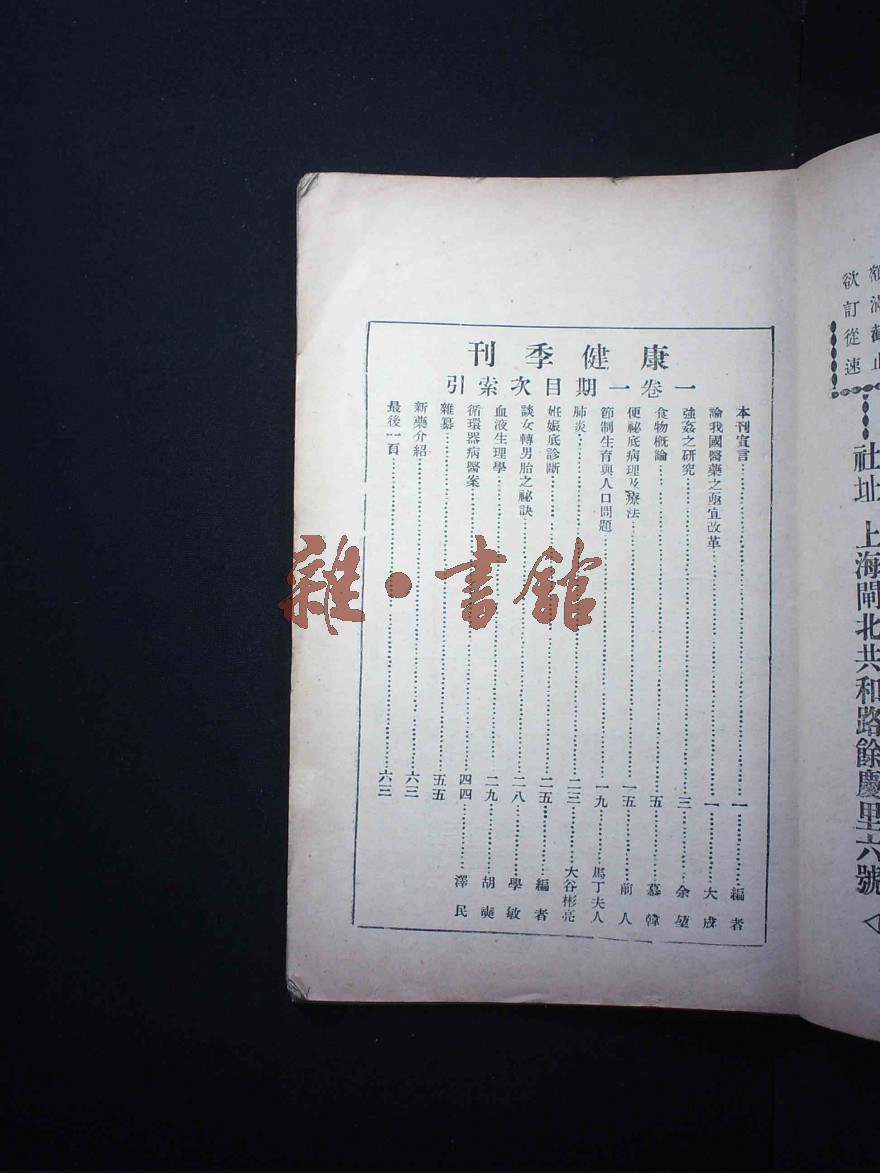 康健季刊
一卷一期目次索引
本刊宣言一編者
論我國醫藥之亟宜改革一大成
強姦之研究三余堃
食物概論五慕韓
便祕底病理及療法一五前人
節制生育與人口問題一九馬丁夫人
肺炎二三大谷彬亮
姙娠底診斷二五編者
談女轉男胎之祕訣二八學敏
血液生理學二九胡奭
循環器病醫案四四澤民
雜纂五五
新藥介紹六三
最後一頁六三
雜·書館
欲訂從速
社址 上海閘北共和路餘慶里六號